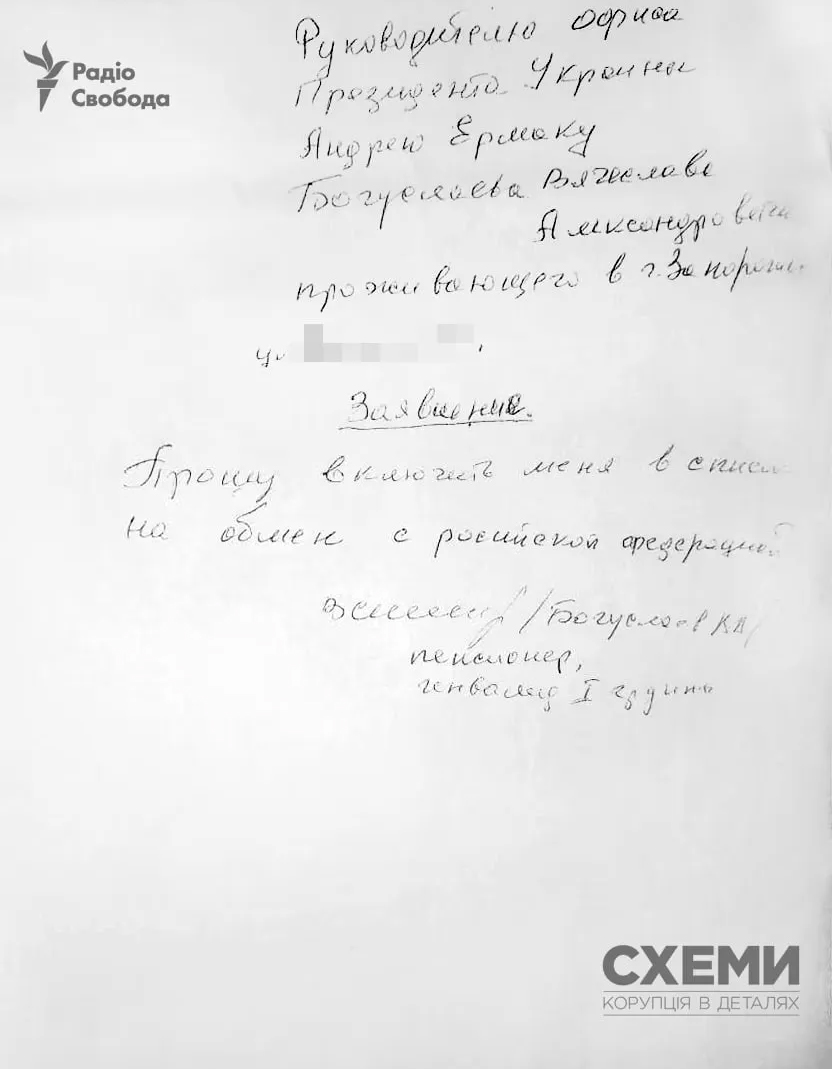 Радіо
Свобода
Руководителю офиса
Президента Украины
Андрею Ермаку
Богуслаева Вячеслава
Александровича
проживающего в г. Запорожье
Заявление.
Прошу включить меня в список
на обмен с росийской федерацией
/Богуслаев ВА/
пенсионер,
инвалид I групы
СХЕМИ
КОРУПЦІЯ В ДЕТАЛЯХ